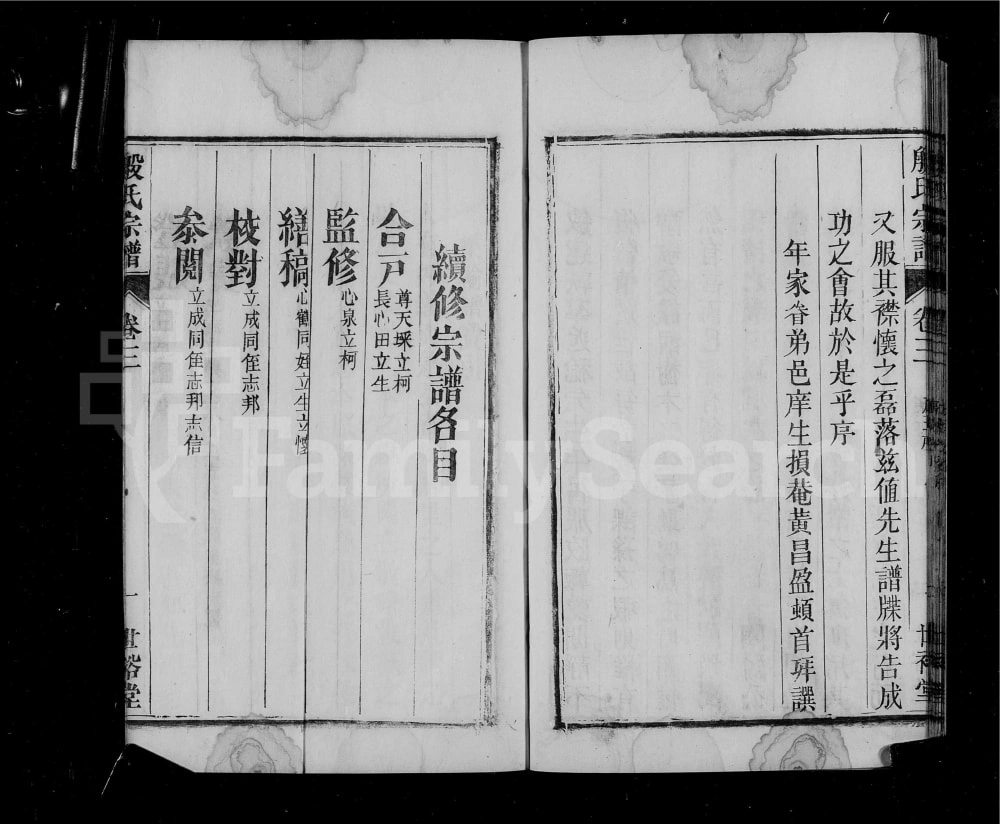 殷氏宗譜 卷三
又服其襟懷之磊落兹值先生譜牒將告成
功之會故於是乎序
年家眷弟邑庠生損菴黃昌盈頓首拜譔
續修宗譜各目
合戸 尊天埰立柯
長心田立生
監修 心泉立柯
繕稿 心鶴同姪立生立
校對 立成同侄志邦
叅閱 立成同侄志邦志信
殷氏宗譜 卷三 一 世裕堂
FamilySearch